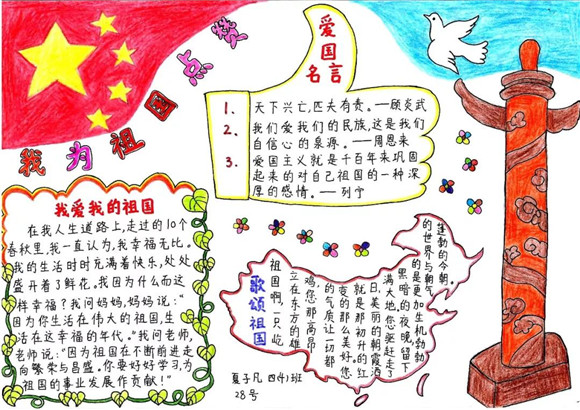 我为祖国点赞
爱国
名言
1、天下兴亡,匹夫有责。——顾炎武
2、我们爱我们的民族,这是我们
自信心的泉源。——周恩来
3、爱国主义就是千百年来巩固
起来的对自己祖国的一种深
厚的感情。——列宁
我爱我的祖国
在我人生道路上,走过的10个
春秋里,我一直认为,我幸福无比。
我的生活时时充满着快乐,处处
盛开着了鲜花。我因为什么而这
样幸福?我问妈妈,妈妈说:“
因为你生活在伟大的祖国,生
活在这幸福的年代。”我问老师,
老师说:“因为祖国在不断前进走
向繁荣与昌盛。你要好好学习,为
祖国的事业发展作贡献!”
歌颂祖国
祖国啊,一只屹
立在东方的雄
鸡,您那高昂
的气质让一切都
变的那么美好。您
就是那初升的红
日,美丽的朝霞洒
满大地,您驱赶走了
黑暗的夜晚留下
的是更加生机勃勃
的世界与朝气
蓬勃的今朝
夏子凡 四(4)班
28号